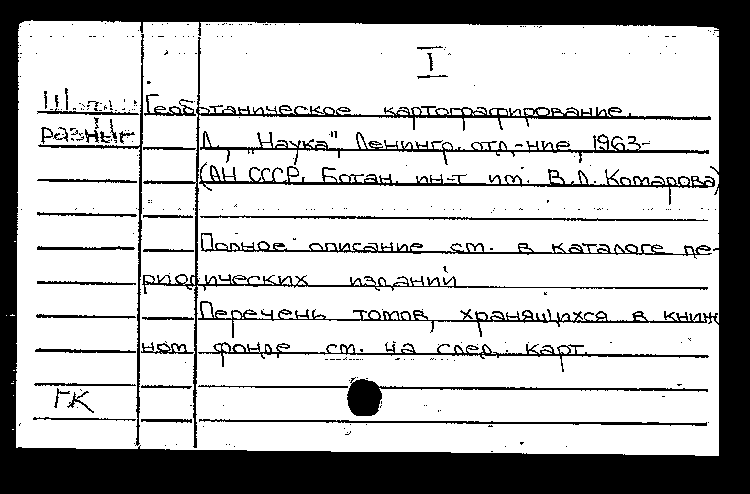 I
Геоботаническое картографирование.
разные
Л., "Наука", Ленингр. отд-ние, 1963-
(АН СССР. Ботан. ин-т им. В.Л. Комарова)
Полное описание см. в каталоге пе-
риодических изданий
Перечень томов, хранящихся в книж
ном фонде см. на след. карт.
ГК